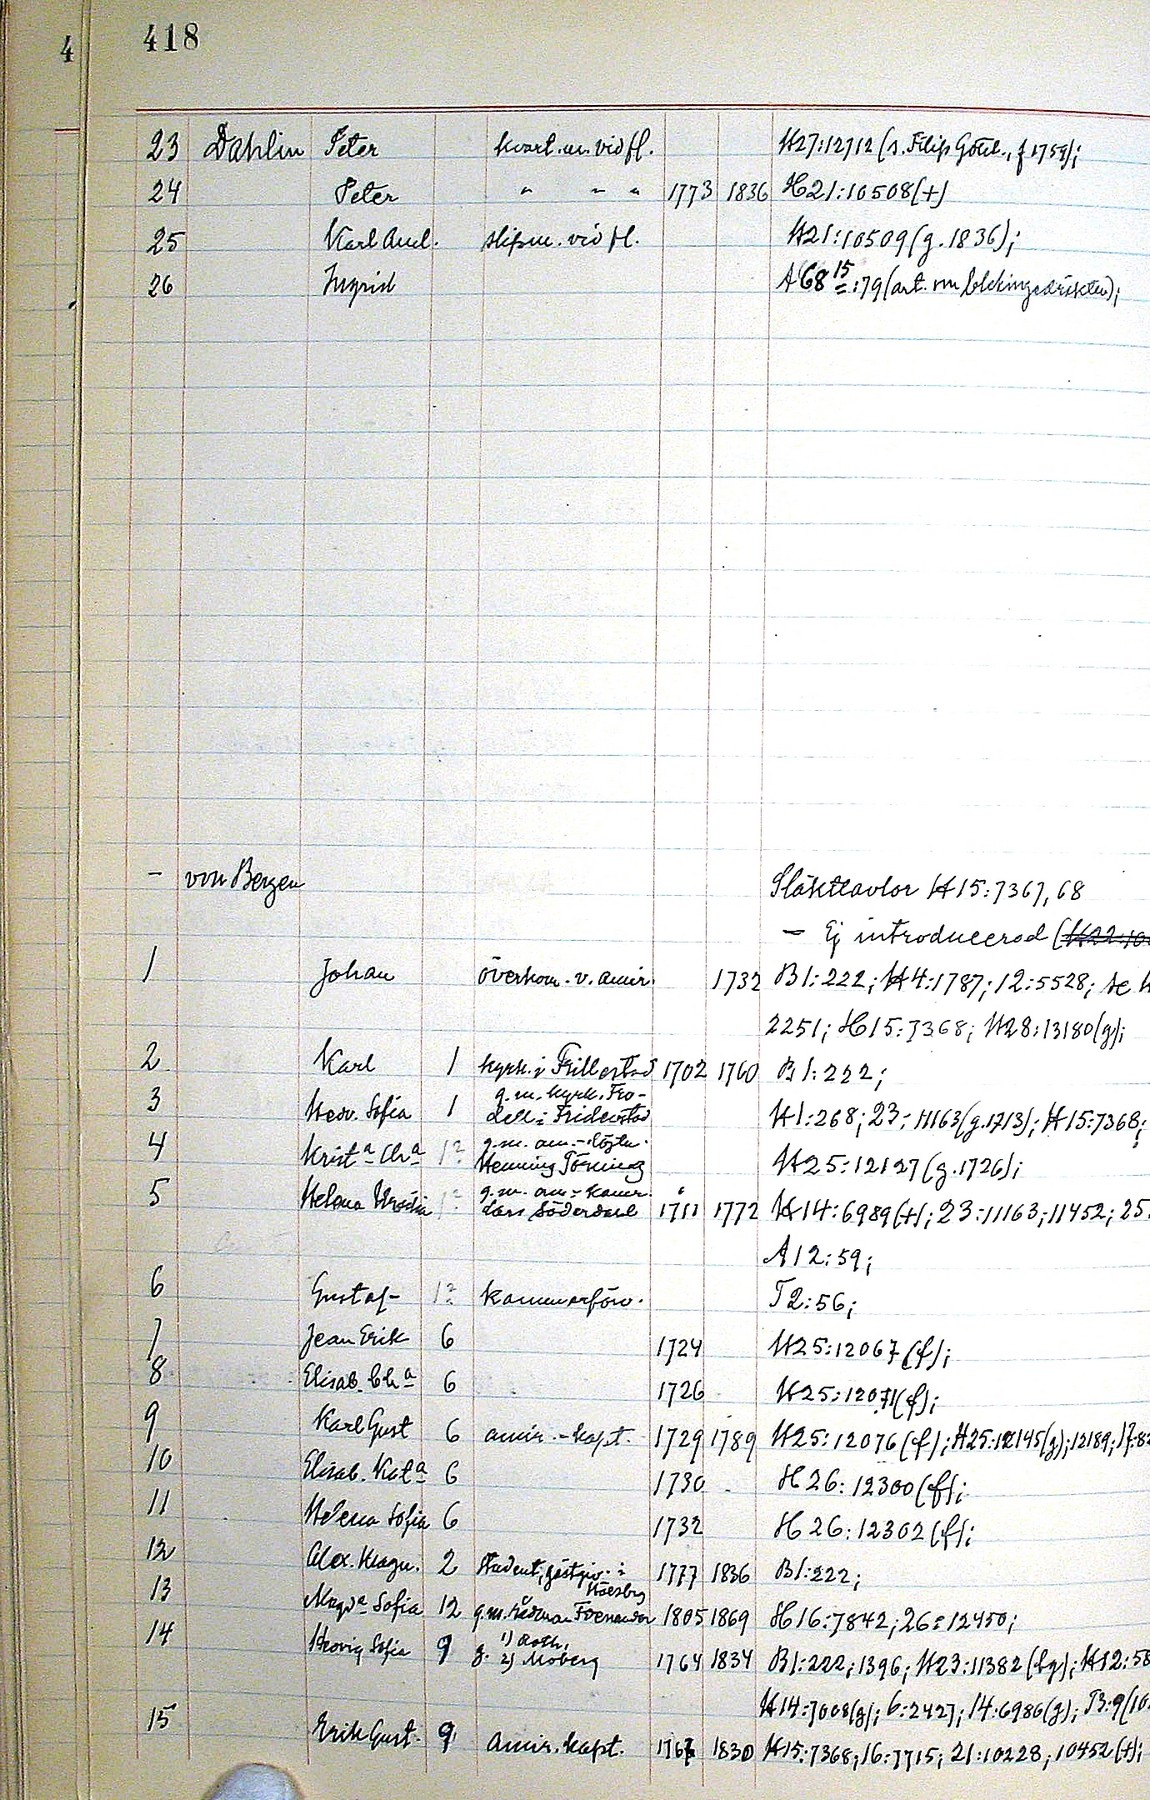 4 418
23 Dahlin Peter kvart.m. vid fl. H27:12712 (s. Filip Götel., f 1759);
24 Peter " " " 1773 1836 H21:10508 (+)
25 Karl Aul. skepm. vid fl. H21:10509 (g. 1836);
26 Ingrid A68 15:79 (art. om blekingedräkter);
- von Bergen Släkttavlor H15:7367, 68
- Ej introducerad
1 Johan överkom. v. amir. 1732 B1:222; H4:1787; 12:5528; se H
2251; H15:7368; H28:13180(g);
2 Karl 1 kyrk. i Fillestad 1702 1760 B1:222;
3 Hedv. Sofia 1 g.m. kyrk. Fro-
dell i Fridlevstad H1:268; 23:11163(g.1713); H15:7368;
4 Krista Cha 1? g.m. am.-
Henning Törning H25:12127 (g.1726);
5 Helena 1? g.m. am:-kamr.
Lars Söderdahl 1711 1772 H14:6989(+); 23:11163; 11452; 25:
A12:59;
6 Gustaf 1? kammarförv. T2:56;
7 Jean Erik 6 1724 H25:12067 (f);
8 Elisab. Cha 6 1726 H25:12071 (f);
9 Karl Gust 6 amir.-kapt. 1729 1789 H25:12076 (f); H25:12145(g); 12189; 17:82
10 Elisab. Kata 6 1730 H26:12300 (f);
11 Helena Sofia 6 1732 H26:12302 (f);
12 Alex. Magn. 2 student, gästgiv. i 1777 1836 B1:222;
13 Magda Sofia 12 g.m. rådman Fornander 1805 1869 H16:7842; 26:12450;
14 Hedvig Sofia 9 g. 1) Roth,
2) Moberg 1764 1834 B1:222; 1396; H23:11382 (lg); H12:58
H14:7008(g); 6:2427; 14:6986(g); B:9(10
15 Erik Gust. 9 Amir. kapt. 1767 1830 H15:7368; 16:7715; 21:10228; 10452 (+);